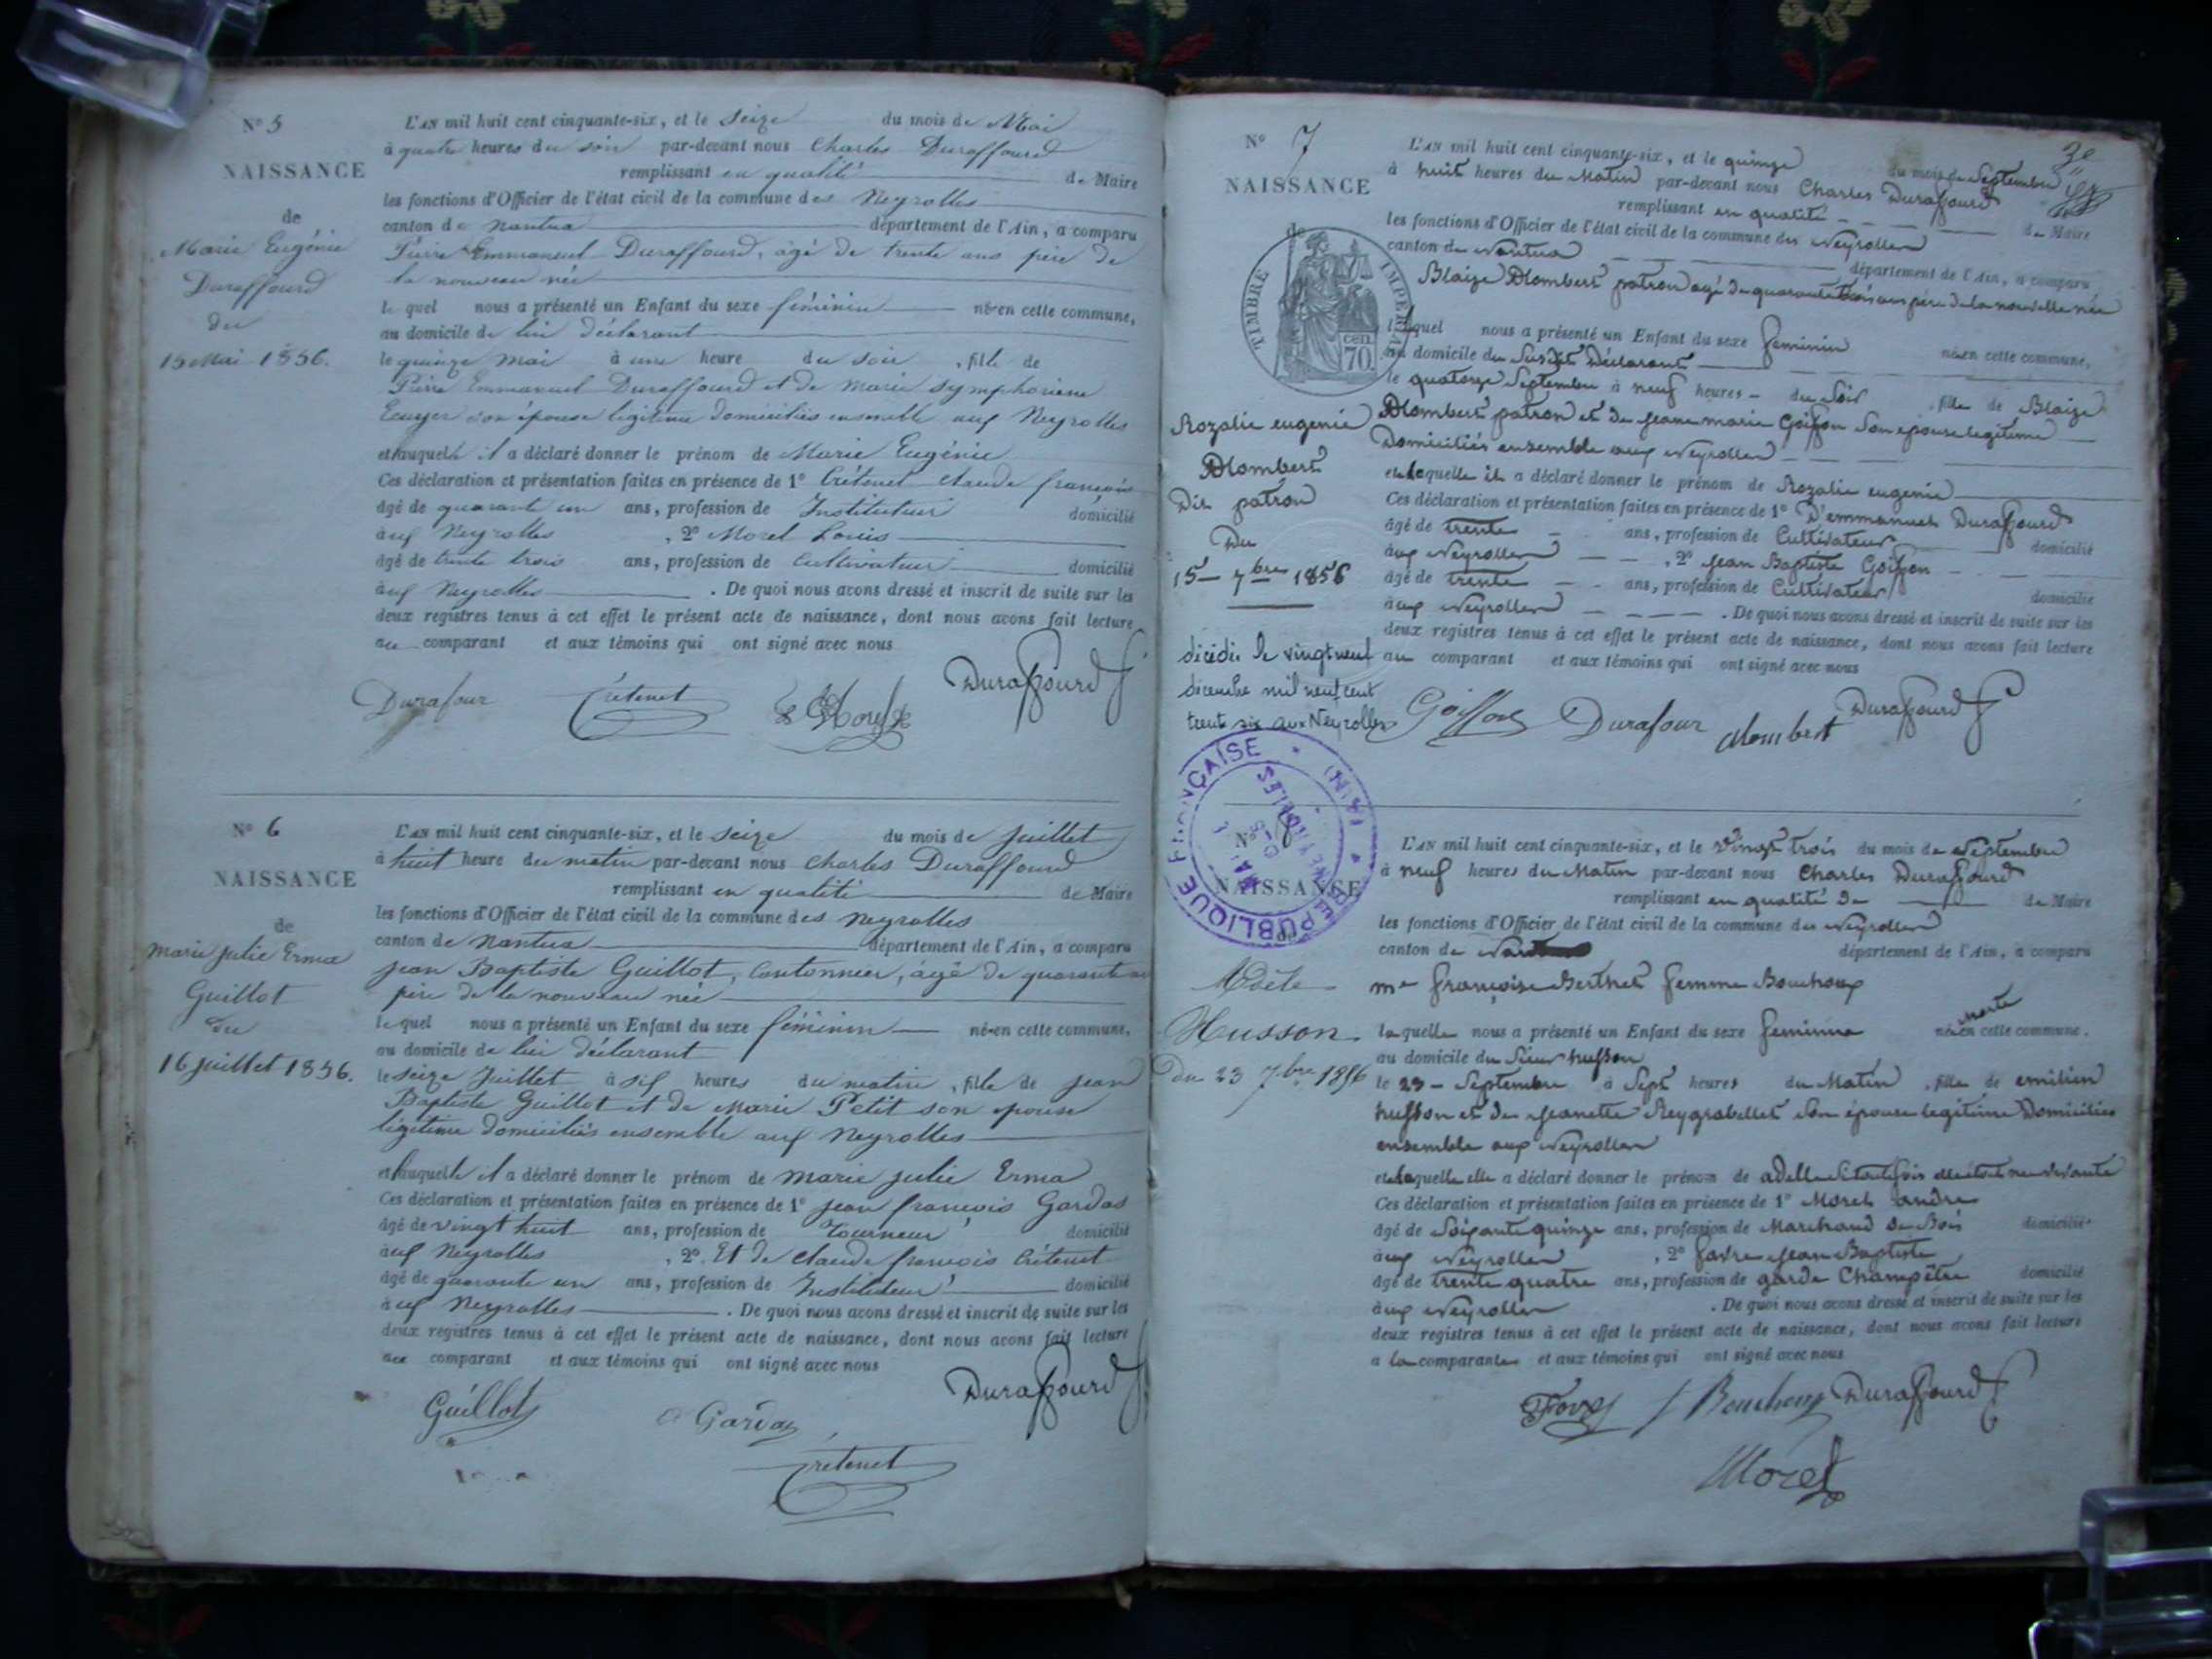 N° 5
NAISSANCE
de
Marie Eugénie
Duraffourd
du
15 Mai 1856.
L'AN mil huit cent cinquante-six, et le Seize du mois de Mai
à quatre heures du soir par-devant nous Charles Duraffourd
remplissant en qualité de Maire
les fonctions d'Officier de l'état civil de la commune des Neyrolles
canton de Nantua département de l'Ain, a comparu
Pierre Emmanuel Duraffourd, âgé de trente ans père de
la nouveau née
le quel nous a présenté un Enfant du sexe féminin né en cette commune,
au domicile de lui déclarant
le quinze mai à une heure du soir, fille de
Pierre Emmanuel Duraffourd et de Marie Symphorienne
Ecuyer son épouse légitime domiciliés ensemble aux Neyrolles
et auquelle il a déclaré donner le prénom de Marie Eugénie
Ces déclaration et présentation faites en présence de 1° Crétenet Claude françois
âgé de quarante un ans, profession de Instituteur domicilié
aux Neyrolles, 2° Morel Louis
âgé de trente trois ans, profession de Cultivateur domicilié
aux Neyrolles. De quoi nous avons dressé et inscrit de suite sur les
deux registres tenus à cet effet le présent acte de naissance, dont nous avons fait lecture
au comparant et aux témoins qui ont signé avec nous
Durafour Crétenet L Morel Duraffourd
N° 6
NAISSANCE
de
Marie Julie Erma
Guillot
du
16 juillet 1856.
L'AN mil huit cent cinquante-six, et le seize du mois de juillet
à huit heure du matin par-devant nous Charles Duraffourd
remplissant en qualité de Maire
les fonctions d'Officier de l'état civil de la commune des Neyrolles
canton de Nantua département de l'Ain, a comparu
Jean Baptiste Guillot, Cantonnier, âgé de quarante
père de la nouveau née
le quel nous a présenté un Enfant du sexe féminin né en cette commune,
au domicile de lui déclarant
le seize Juillet à six heures du matin, fille de Jean
Baptiste Guillot et de Marie Petit son épouse
légitime domiciliés ensemble aux Neyrolles
et auquelle il a déclaré donner le prénom de Marie Julie Erma
Ces déclaration et présentation faites en présence de 1° Jean françois Gardas
âgé de vingt huit ans, profession de Tourneur domicilié
aux Neyrolles, 2° Et de Claude françois Crétenet
âgé de quarante un ans, profession de Instituteur domicilié
aux Neyrolles. De quoi nous avons dressé et inscrit de suite sur les
deux registres tenus à cet effet le présent acte de naissance, dont nous avons fait lecture
au comparant et aux témoins qui ont signé avec nous
Guillot Gardas Duraffourd
Crétenet
3e
N° 7
NAISSANCE
de
TIMBRE IMPÉRIAL
70 cen.
Rozalie eugenie
Mombert
Dit patron
Du
15 7bre 1856
décédée le vingt neuf
décembre mil neuf cent
trente six aux Neyrolles
L'AN mil huit cent cinquante-six, et le quinze du mois de Septembre
à huit heures du Matin par-devant nous Charles Duraffourd
remplissant en qualité de Maire
les fonctions d'Officier de l'état civil de la commune des Neyrolles
canton de Nantua département de l'Ain, a comparu
Blaize Mombert patron agé de quarante trois ans père de la nouvelle née
lequel nous a présenté un Enfant du sexe feminin né en cette commune,
au domicile du Susdit Déclarant
le quatorze Septembre à neuf heures du Soir, fille de Blaize
Mombert patron et de Jeanne marie Goiffon Son epouse legitime
Domiciliés ensemble aux Neyrolles
et à laquelle il a déclaré donner le prénom de Rozalie eugenie
Ces déclaration et présentation faites en présence de 1° D'emmanuel Duraffourd
âgé de trente ans, profession de Cultivateur domicilié
aux Neyrolles, 2° Jean Baptiste Goiffon
âgé de trente ans, profession de Cultivateur domicilié
aux Neyrolles. De quoi nous avons dressé et inscrit de suite sur les
deux registres tenus à cet effet le présent acte de naissance, dont nous avons fait lecture
au comparant et aux témoins qui ont signé avec nous
Goiffon Durafour Mombert Duraffourd
RÉPUBLIQUE FRANÇAISE
MAIRIE DES NEYROLLES (AIN)
N° 8
NAISSANCE
de
Adèle
Husson
Du 23 7bre 1856
L'AN mil huit cent cinquante-six, et le Vingt trois du mois de Septembre
à neuf heures du Matin par-devant nous Charles Duraffourd
remplissant en qualité de de Maire
les fonctions d'Officier de l'état civil de la commune des Neyrolles
canton de département de l'Ain, a comparu
me françoise Berthet femme Bouchoux
laquelle nous a présenté un Enfant du sexe feminin né morte en cette commune.
au domicile du Sieur husson
le 23 Septembre à Sept heures du Matin, fille de emilien
husson et de Jeanette Reygrobellet Son épouse legitime Domiciliés
ensemble aux Neyrolles
et à laquelle elle a déclaré donner le prénom de adelle Si toutefois elle était née vivante
Ces déclaration et présentation faites en présence de 1° Morel andre
âgé de Soixante quinze ans, profession de Marchand de Bois domicilié
aux Neyrolles, 2° favre Jean Baptiste
âgé de trente quatre ans, profession de garde Champêtre domicilié
aux Neyrolles. De quoi nous avons dressé et inscrit de suite sur les
deux registres tenus à cet effet le présent acte de naissance, dont nous avons fait lecture
a la comparante et aux témoins qui ont signé avec nous
Favre f Bouchoux Duraffourd
Morel